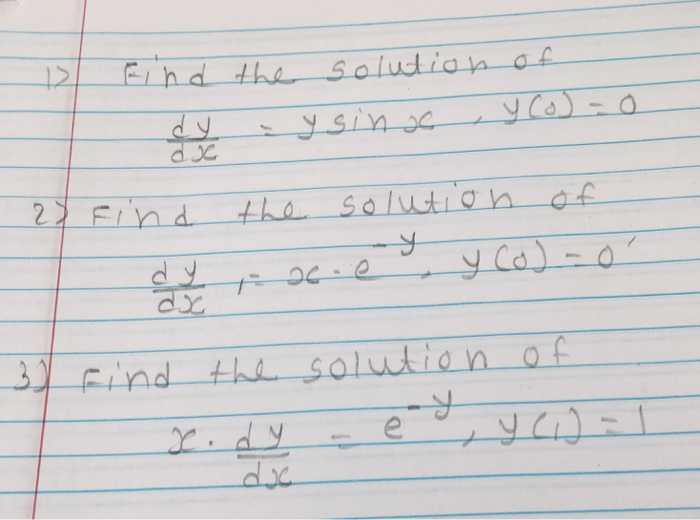 1) Find the solution of
dy/dx = y sin x , y(0) = 0
2) Find the solution of
dy/dx = x · e^-y , y(0) = 0
3) Find the solution of
x · dy/dx = e^-y , y(1) = 1